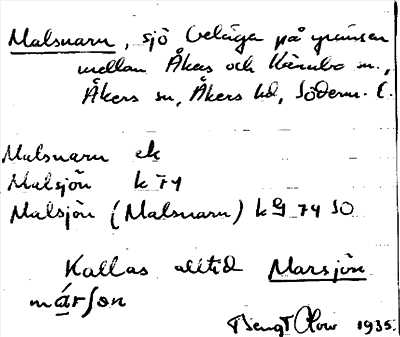 Malsnaren, sjö belägna på gränsen
mellan Åkers och Kärnbo sn.,
Åkers sn, Åkers hd, Söderm. l.
Malsnaren ek
Malsjön k 74
Malsjön (Malsnaren) kg 74 SO
Kallas alltid Marsjön
Bengt Olow 1935.